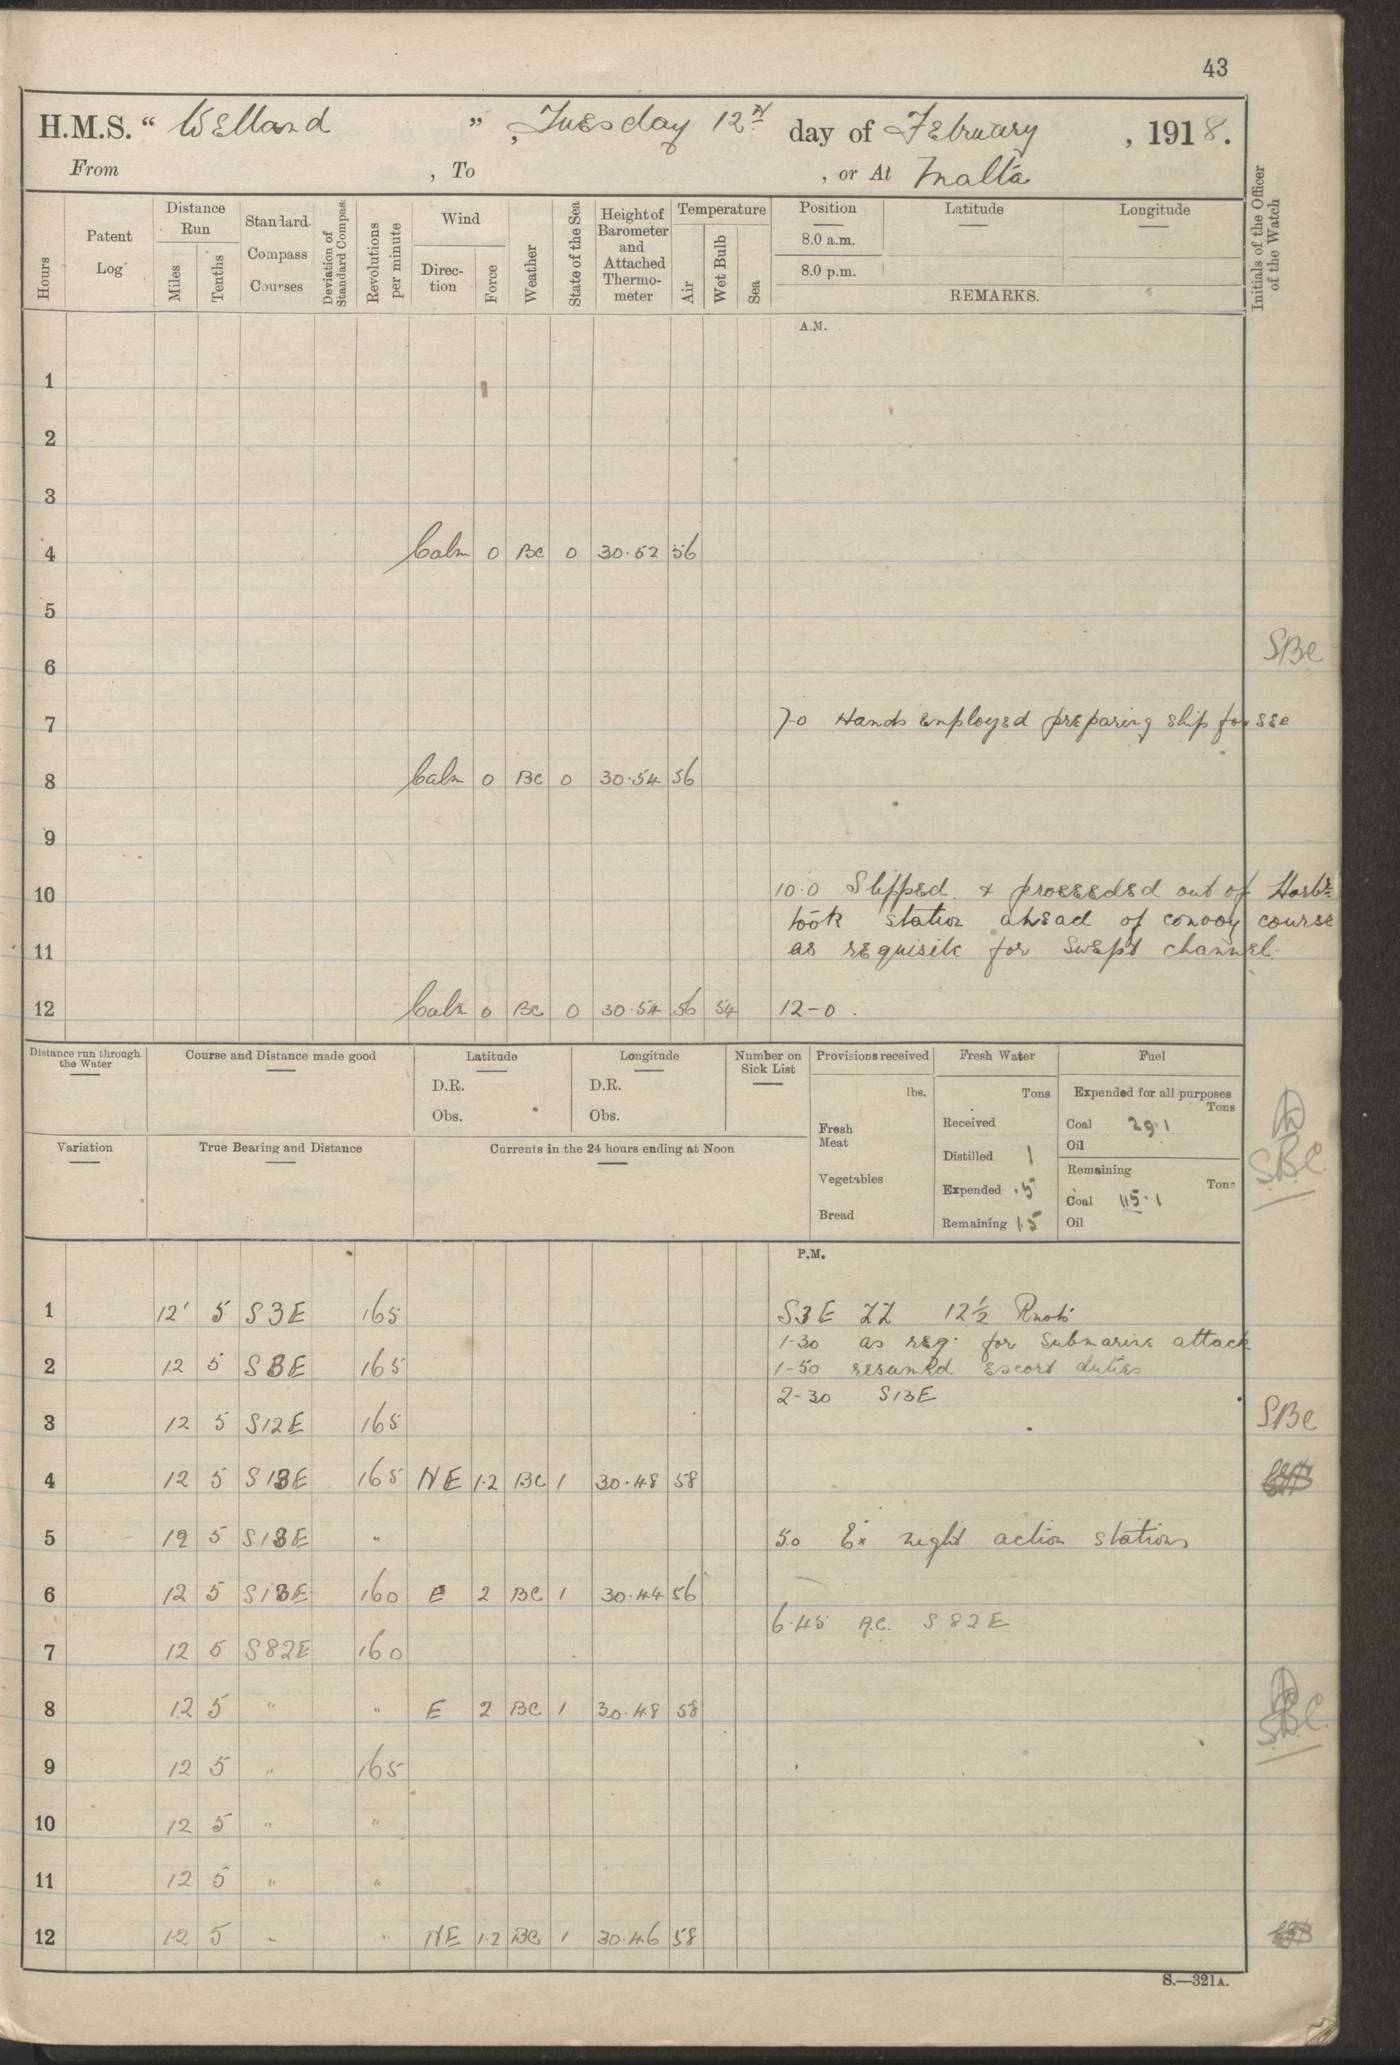 43
H.M.S. “ Welland ”, Tuesday 12th day of February, 1918.
From , To , or At Malta
Hours
Patent Log
Distance Run
Miles
Tenths
Standard Compass Courses
Deviation of Standard Compass
Revolutions per minute
Wind
Direction
Force
Weather
State of the Sea
Height of Barometer and Attached Thermometer
Temperature
Air
Wet Bulb
Sea
Position
8.0 a.m.
8.0 p.m.
Latitude
Longitude
REMARKS.
Initials of the Officer of the Watch
A.M.
1
2
3
4 Calm 0 BC 0 30.52 56
5
6 SBC
7 7-0 Hands employed preparing ship for sea
8 Calm 0 BC 0 30.54 56
9
10 10.0 Slipped & proceeded out of Harbr
took station ahead of convoy course
11 as requisite for swept channel.
12 Calm 0 BC 0 30.54 56 54 12-0.
Distance run through the Water
Course and Distance made good
Latitude
D.R.
Obs.
Longitude
D.R.
Obs.
Number on Sick List
Provisions received
lbs.
Fresh Meat
Vegetables
Bread
Fresh Water
Tons
Received
Distilled 1
Expended .5
Remaining 1.5
Fuel
Expended for all purposes
Tons
Coal 29.1
Oil
Remaining
Tons
Coal 115.1
Oil
S.B.C.
Variation
True Bearing and Distance
Currents in the 24 hours ending at Noon
P.M.
1 12' 5 S3E 165 S3E ZZ 12½ Knots
1-30 as req. for Submarine attack
2 12 5 S3E 165 1-50 resumed escort duties
2-30 S13E
3 12 5 S12E 165 SBC
4 12 5 S13E 165 NE 1.2 BC 1 30.48 58
5 12 5 S13E " 5.0 Ex night action stations
6 12 5 S13E 160 E 2 BC 1 30.44 56
6.45 A.C. S82E
7 12 5 S82E 160
8 12 5 " " E 2 BC 1 30.48 58 S.B.C.
9 12 5 " 165
10 12 5 " "
11 12 5 " "
12 12 5 " " NE 1.2 BC 1 30.46 58
S.—321A.